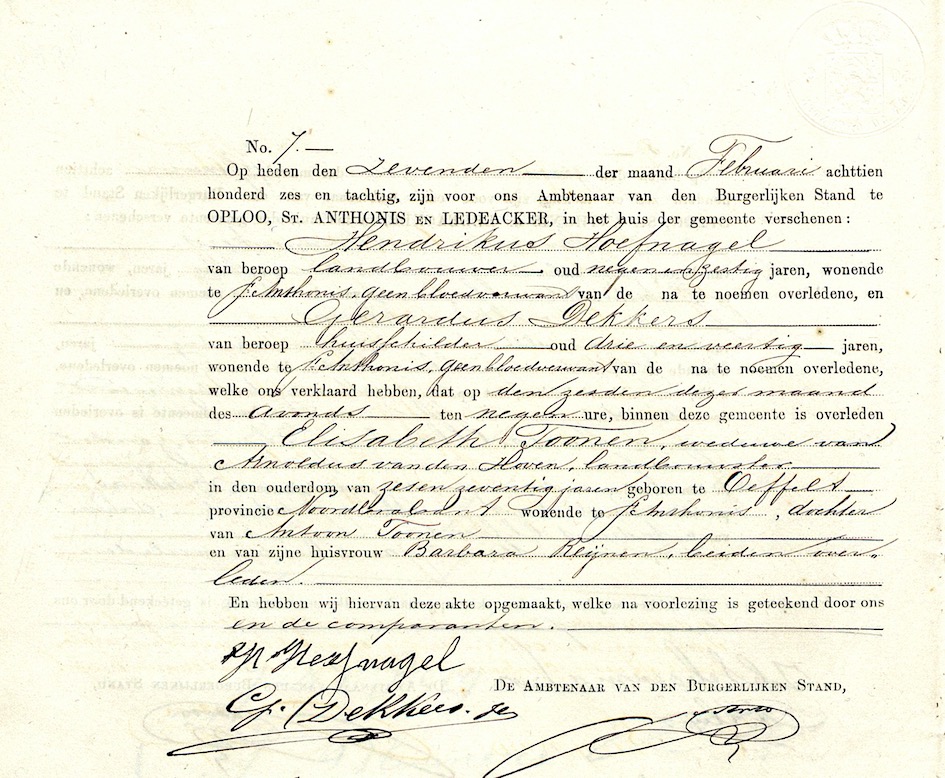 No. 7.
Op heden den zevenden der maand Februari achttien
honderd zes en tachtig, zijn voor ons Ambtenaar van den Burgerlijken Stand te
OPLOO, ST. ANTHONIS EN LEDEACKER, in het huis der gemeente verschenen:
Hendrikus Hoefnagel
van beroep landbouwer oud negen en zestig jaren, wonende
te St Anthonis, geen bloedverwant van de na te noemen overledene, en
Gerardus Dekkers
van beroep huisschilder oud drie en veertig jaren,
wonende te St Anthonis, geen bloedverwant van de na te noemen overledene,
welke ons verklaard hebben, dat op den zesden dezer maand
des avonds ten negen ure, binnen deze gemeente is overleden
Elisabeth Toonen, weduwe van
Arnoldus van den Hoven, landbouwster
in den ouderdom van zes en zeventig jaren geboren te Oeffelt
provincie Noordbrabant wonende te St Anthonis, dochter
van Antoon Toonen
en van zijne huisvrouw Barbara Reijnen, beiden over„
leden.
En hebben wij hiervan deze akte opgemaakt, welke na voorlezing is geteekend door ons
en de comparanten.
H Hoefnagel
DE AMBTENAAR VAN DEN BURGERLIJKEN STAND,
G. Dekkers